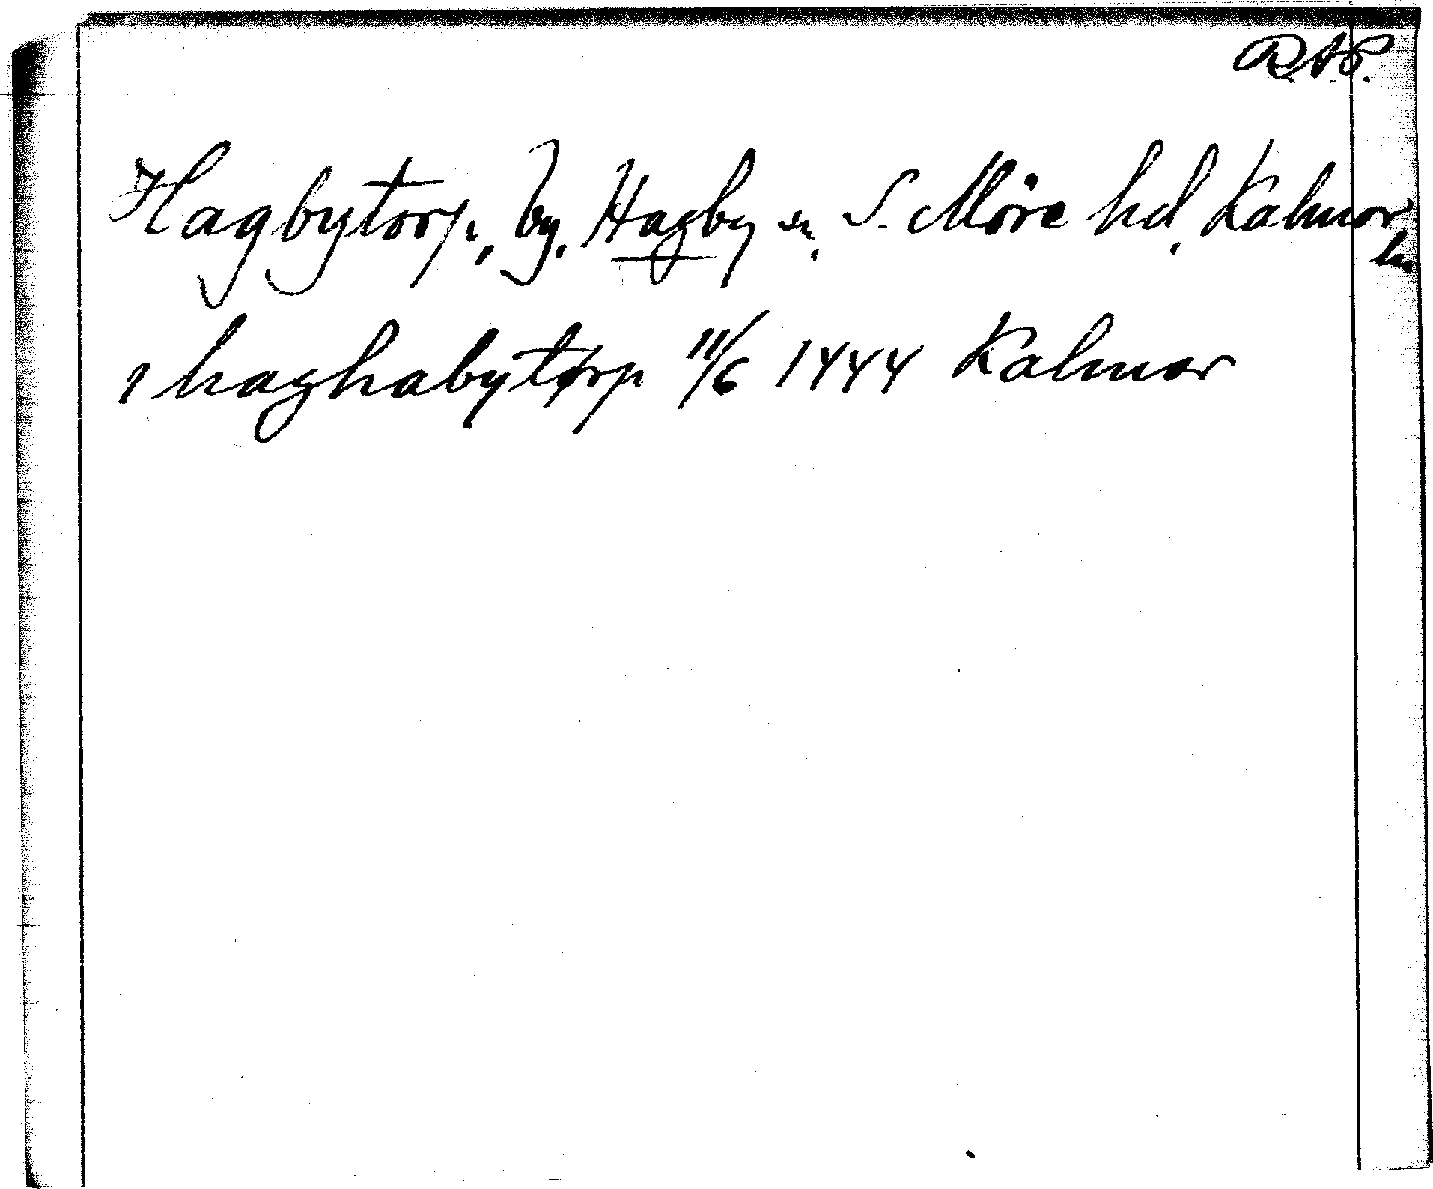 RAP.
Hagbytorp, by, Hagby sn, S. Möre hd, Kalmar
ln
i haghabytørp 11/6 1444 Kalmar